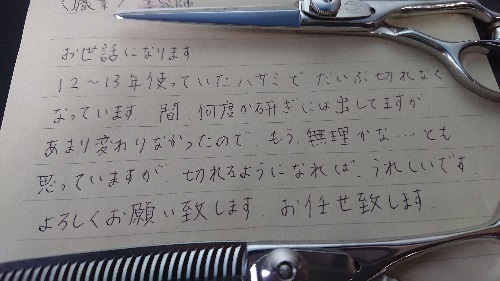 〈職業〉美容師
お世話になります。
12〜13年使っていたハサミで、だいぶ切れなく
なっています。間、何度か研ぎには出してますが
あまり変わりなかったので、もう、無理かな…とも
思っていますが、切れるようになれば、うれしいです
よろしくお願い致します。お任せ致します